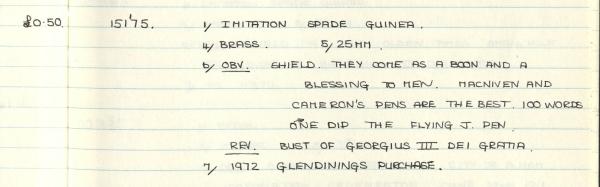 £0·50. 151'75. 1/ IMITATION SPADE GUINEA.
4/ BRASS. 5/ 25MM.
6/ OBV. SHIELD. THEY COME AS A BOON AND A
BLESSING TO MEN. MACNIVEN AND
CAMERON'S PENS ARE THE BEST. 100 WORDS
ONE DIP THE FLYING J. PEN.
REV. BUST OF GEORGIUS III DEI GRATIA.
7/ 1972 GLENDININGS PURCHASE.